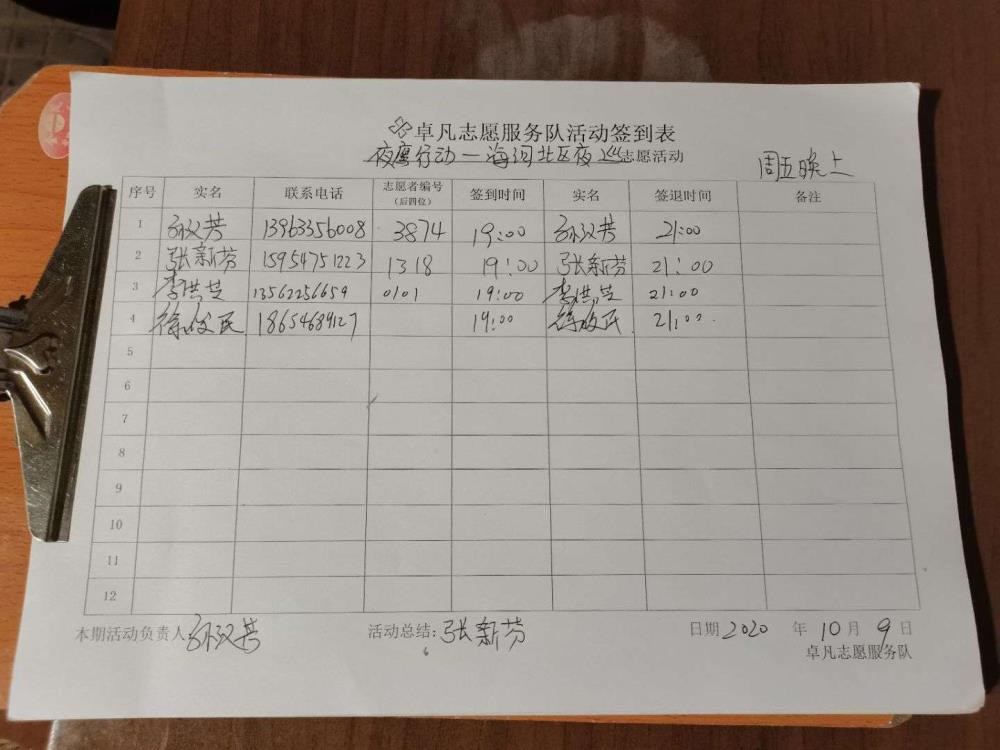 卓凡志愿服务队活动签到表
夜鹰行动一海河北区夜巡志愿活动
周五晚上
序号 实名 联系电话 志愿者编号(后四位) 签到时间 实名 签退时间 备注
1 孙汉芳 13963356008 3874 19:00 孙汉芳 21:00
2 张新芬 15954751223 1318 19:00 张新芬 21:00
3 李洪芝 13562256659 0101 19:00 李洪芝 21:00
4 徐俊民 18654689127 19:00 徐俊民 21:00
5
6
7
8
9
10
11
12
本期活动负责人 孙汉芳 活动总结: 张新芬 日期 2020 年 10 月 9 日
卓凡志愿服务队